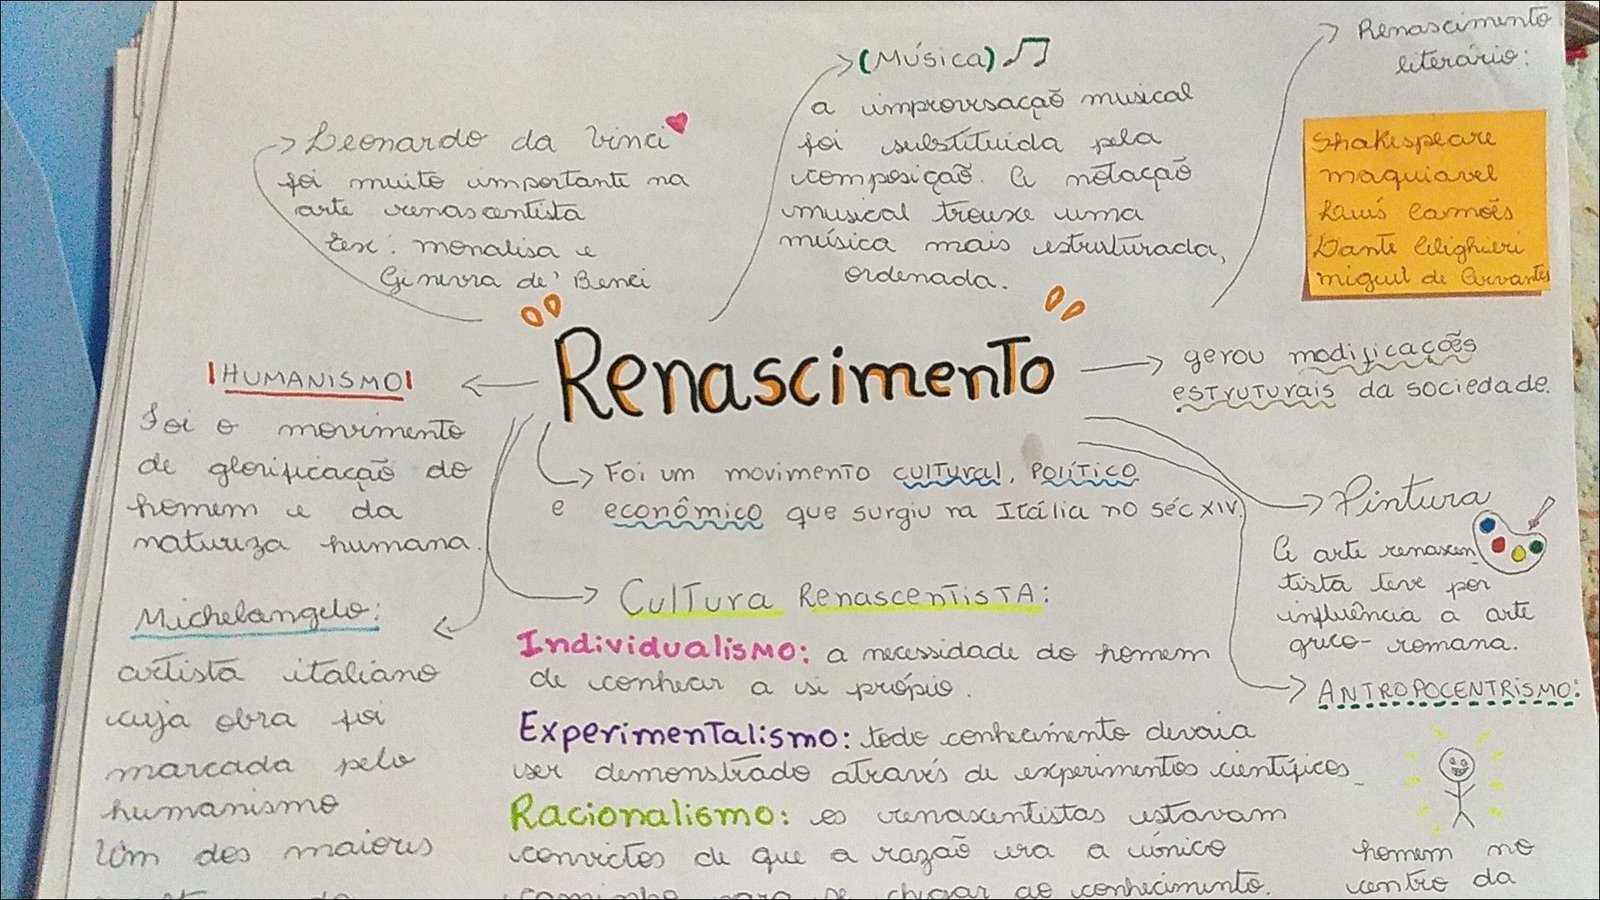 Leonardo da Vinci
foi muito importante na
arte renascentista
Ex: monalisa e
Ginevra de' Benci
(Música)
a improvisação musical
foi substituída pela
composição. A notação
musical trouxe uma
música mais estruturada,
ordenada.
Renascimento
literário:
Shakespeare
maquiavel
Luís Camões
Dante Alighieri
miguel de Cervantes
Renascimento
gerou modificações
estruturais da sociedade.
HUMANISMO
Foi o movimento
de glorificação do
homem e da
natureza humana.
Foi um movimento cultural, político
e econômico que surgiu na Itália no séc XIV.
Pintura
A arte renascen
tista teve por
influência a arte
greco-romana.
Michelangelo:
artista italiano
cuja obra foi
marcada pelo
humanismo
Um dos maiores
Cultura Renascentista:
Individualismo: a necessidade do homem
de conhecer a si próprio.
Experimentalismo: todo conhecimento deveria
ser demonstrado através de experimentos científicos
Racionalismo: os renascentistas estavam
convictos de que a razão era a único
caminho para se chegar ao conhecimento.
ANTROPOCENTRISMO:
homem no
centro da